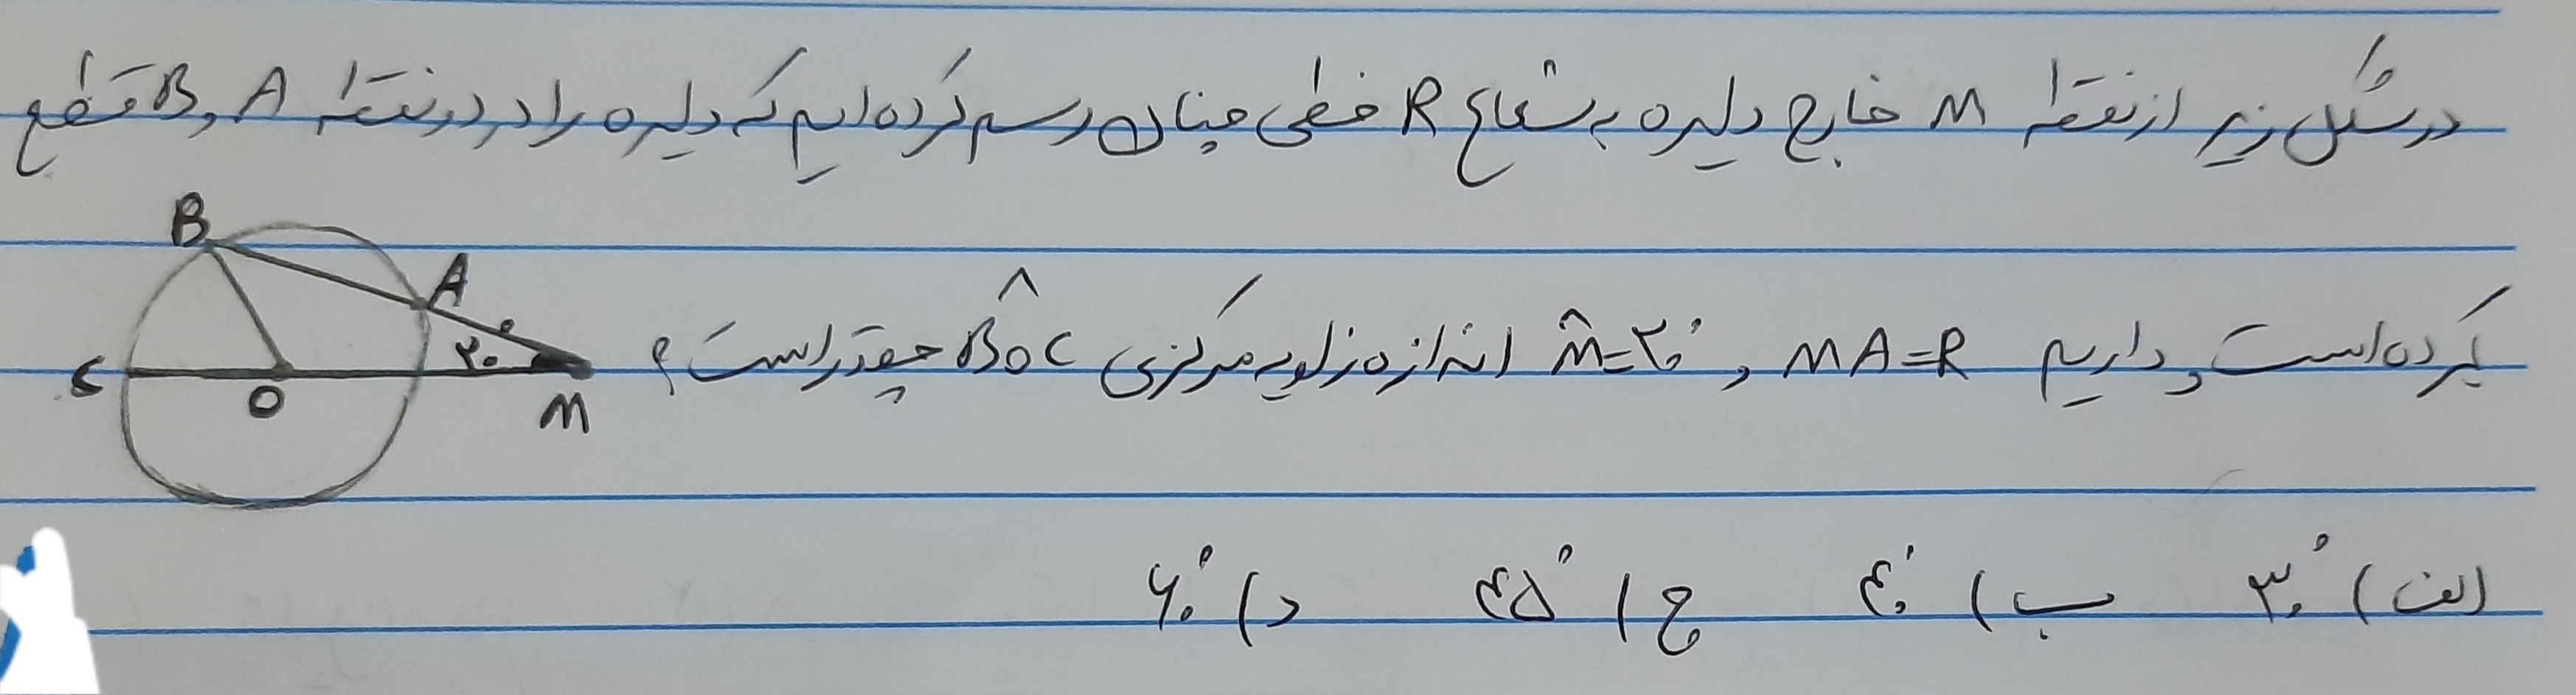 در شکل زیر از نقطه M خارج دایره به شعاع R خطی چنان رسم کرده ایم که دایره را در دو نقطه A و B قطع
کرده است و داریم MA=R و M̂=۲۰° اندازه زاویه مرکزی BÔC چقدر است؟
B
A
۲۰°
C
O
M
الف) ۳۰° ب) ۴۰° ج) ۴۵° د) ۶۰°